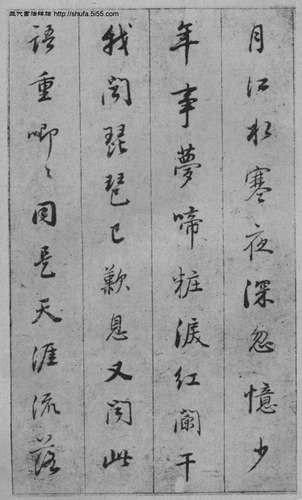 http://shufa.5i55.com
月江水寒夜深忽憶少
年事夢啼粧淚紅闌干
我聞琵琶已歎息又聞此
語重唧々同是天涯流落